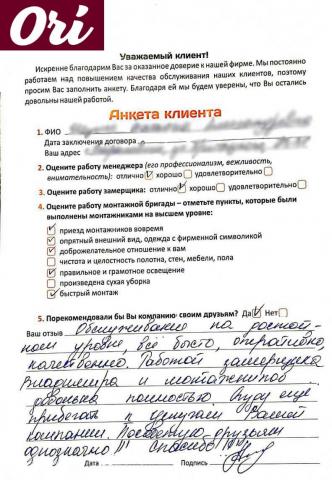 Ori
Уважаемый клиент!
Искренне благодарим Вас за оказанное доверие к нашей фирме. Мы постоянно
работаем над повышением качества обслуживания наших клиентов, поэтому
просим Вас заполнить анкету. Благодаря ей мы будем уверены, что Вы остались
довольны нашей работой.
Анкета клиента
1. ФИО
Дата заключения договора
Ваш адрес
2. Оцените работу менеджера (его профессионализм, вежливость,
внимательность): отлично хорошо удовлетворительно
3. Оцените работу замерщика: отлично хорошо удовлетворительно
4. Оцените работу монтажной бригады – отметьте пункты, которые были
выполнены монтажниками на высшем уровне:
приезд монтажников вовремя
опрятный внешний вид, одежда с фирменной символикой
доброжелательное отношение к вам
чистота и целостность полотна, стен, мебели, пола
правильное и грамотное освещение
произведена сухая уборка
быстрый монтаж
5. Порекомендовали бы Вы компанию своим друзьям? Да Нет
Ваш отзыв Обслуживание на достой-
ном уровне, всё быстро, оперативно,
качественно. Работой замерщика
Владимира и монтажников
довольна полностью. Буду ещё
прибегать к услугам Вашей
компании. Посоветую друзьям
однозначно!!! Спасибо!!!
Дата Подпись